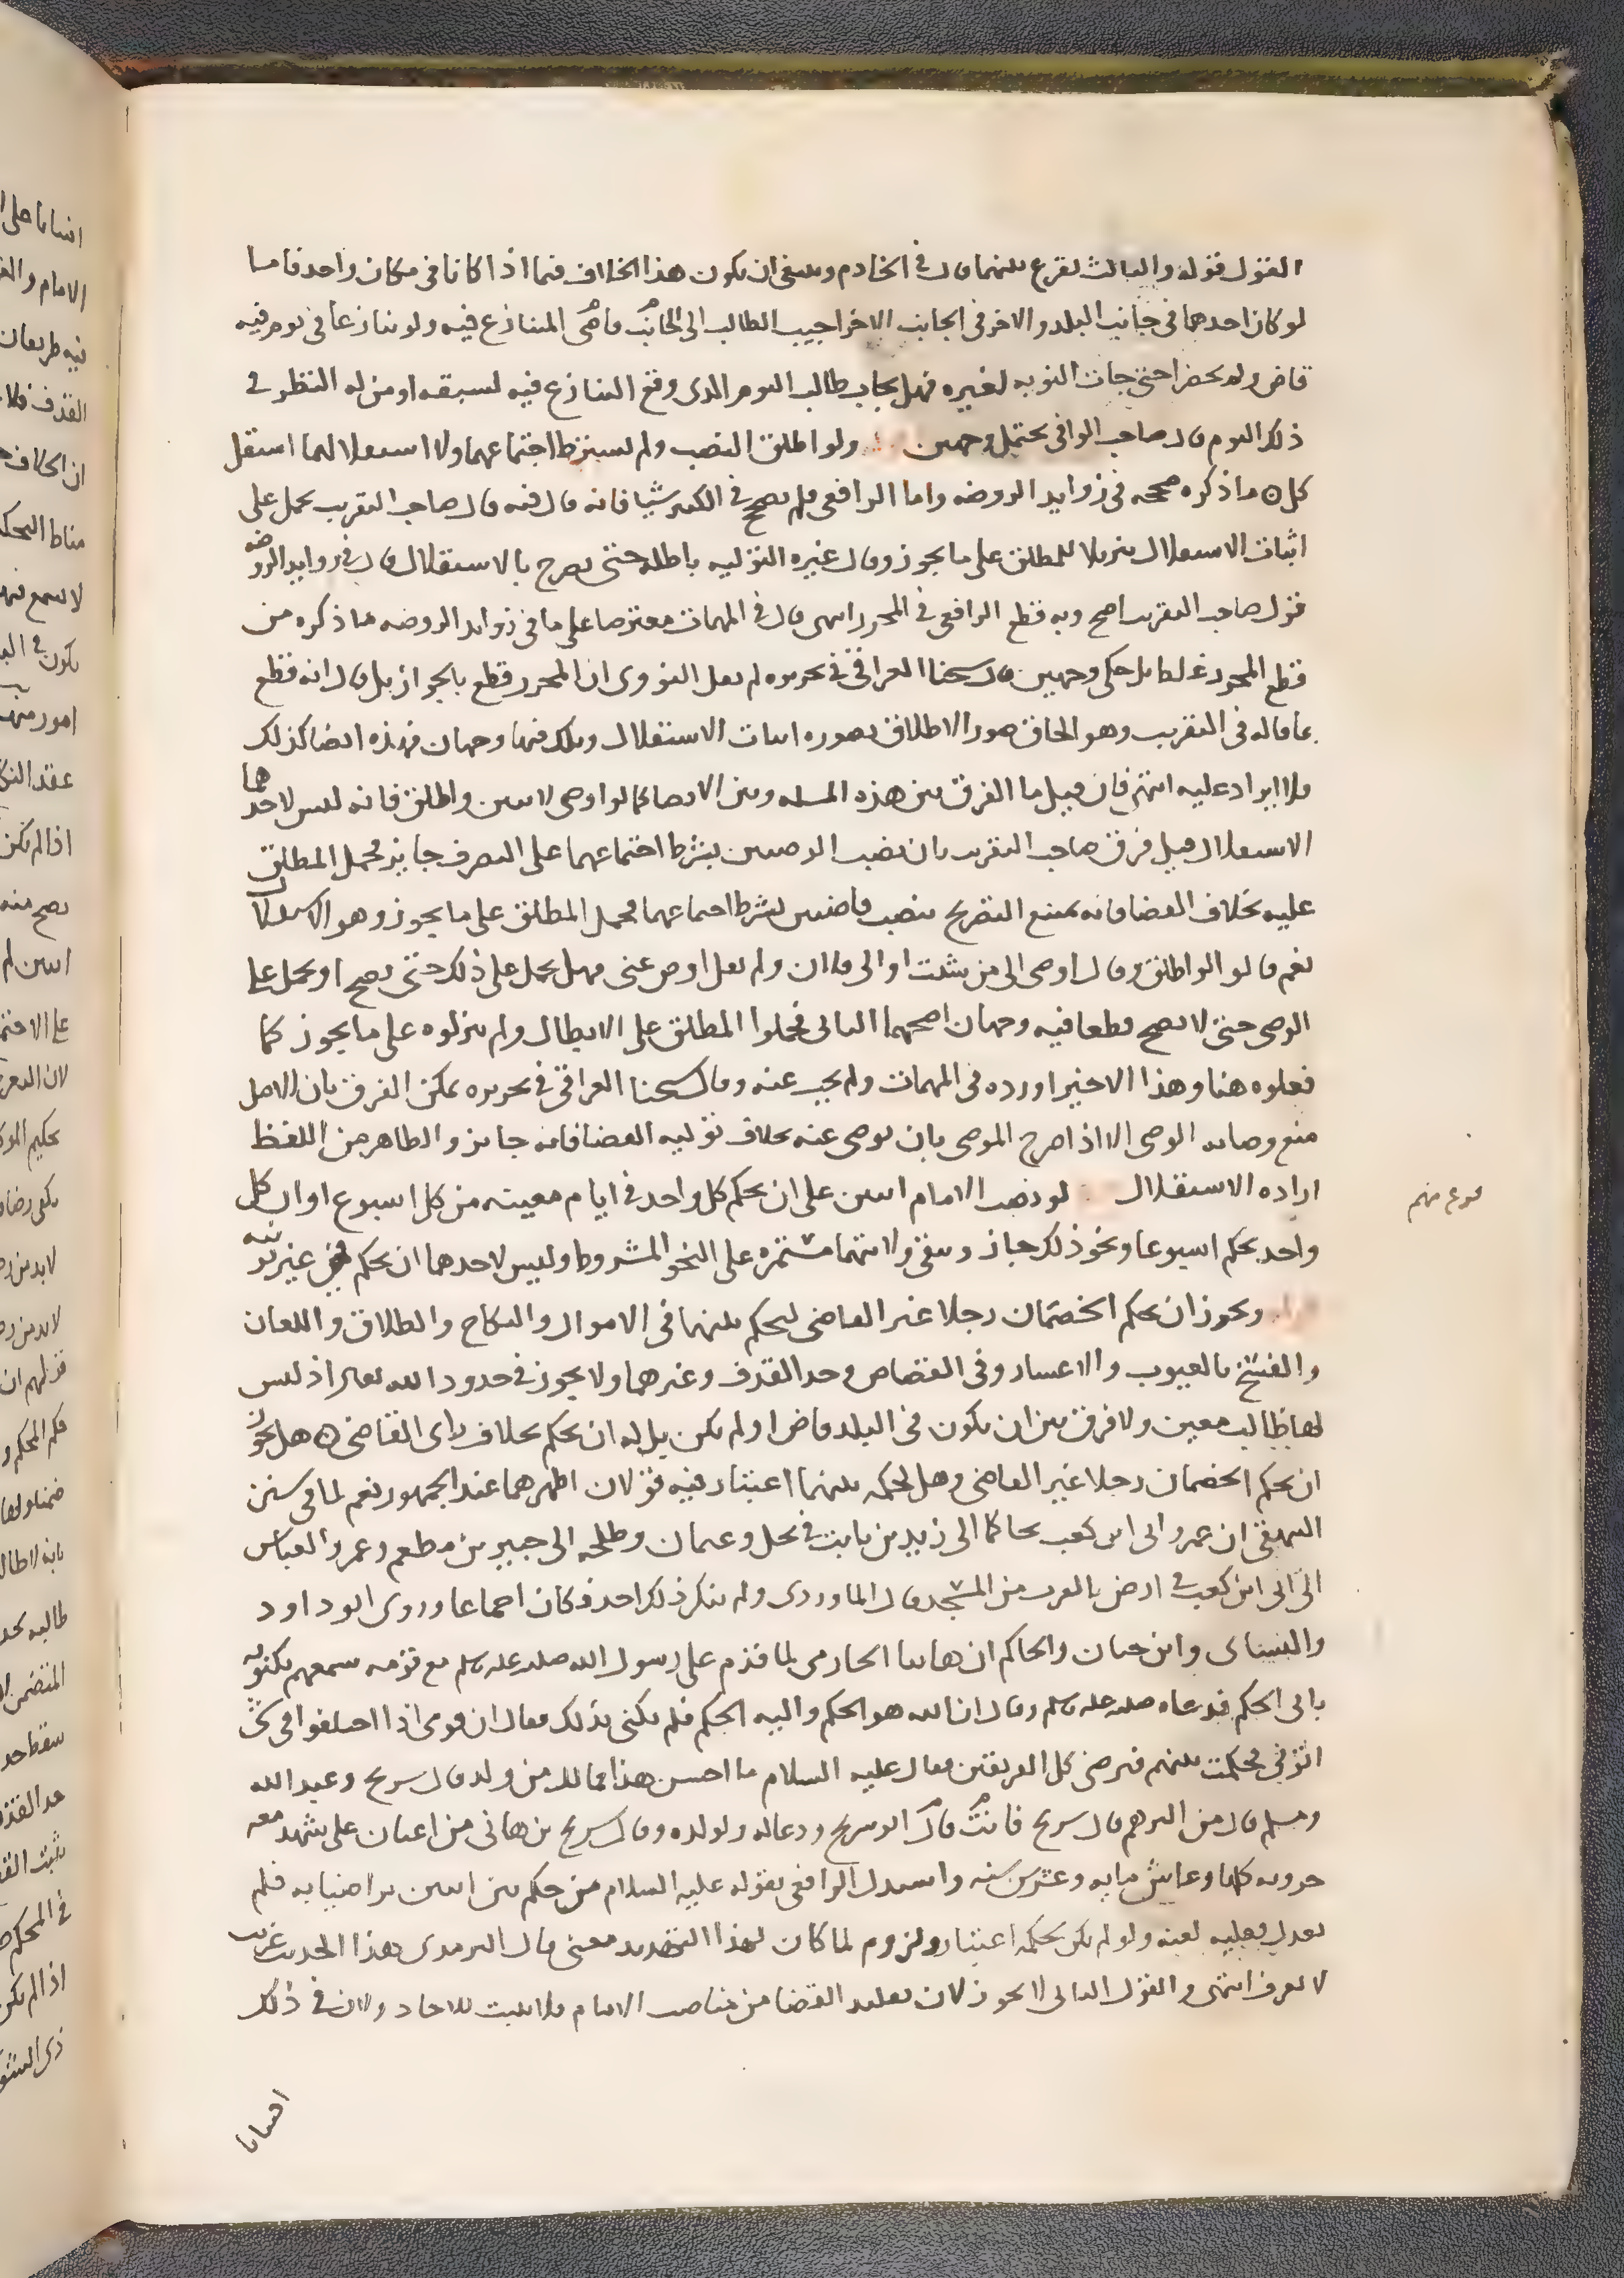 القول قوله والثالث يقرع بينهما قال في الخادم وينبغي ان يكون هذا الخلاف فيما اذا كانا في مكان واحد فاما
لو كان احدهما في جانب البلد والاخر في الجانب الاخر اجيب الطالب الى الجانب قاضي المتنازع فيه ولو تنازعا في يوم فيه
قاض ولم يحضرا حتى جات النوبه لغيره فهل يجاب طالب اليوم الذي وقع التنازع فيه لسبقه او من له النظر في
ذلك اليوم قال صاحب الوافي يحتمل وجهين ولو اطلق النصب ولم يشترط اجتماعهما ولا استقلالهما استقل
كل ما ذكره صححه في زوايد الروضه واما الرافعي فلم يصحح في الكبير شيا فانه قال فيه قال صاحب التقريب يحمل على
اثبات الاستقلال تنزيلا للمطلق على ما يجوز وقال غيره التوليه باطله حتى يصرح بالاستقلال قال في زوايد الروضه
قول صاحب التقريب اصح وبه قطع الرافعي في المحرر انتهى قال في المهمات معترضا على ما في زوايد الروضه ما ذكره من
قطع المحرر غلط بل حكى وجهين قال شيخنا العراقي في تحريره لم يقل النووي ان المحرر قطع بالجواز بل قال انه قطع
بما قاله في التقريب وهو الحاق صور الاطلاق بصوره اثبات الاستقلال وتلك فيها وجهان فهذه ايضا كذلك
فلا ايراد عليه انتهى فان قيل ما الفرق بين هذه المسله وبين الايصا كما لو اوصى لاثنين واطلق فانه ليس لاحدهما
الاستقلال قيل فرق صاحب التقريب بان نصب الوصيين بشرط اجتماعهما على التصرف جايز فحمل المطلق
عليه بخلاف القضا فانه يمتنع التصريح بنصب قاضيين بشرط اجتماعهما فحمل المطلق على ما يجوز وهو الاستقلال
نعم قالوا لو اطلق وقال اوص الى من شئت او الى فلان ولم يقل اوص عني فهل يحمل على ذلك حتى يصح او يحمل على
الوصي حتى لا يصح قطعا فيه وجهان اصحهما الثاني فحملوا المطلق على الابطال ولم ينزلوه على ما يجوز كما
فعلوه هنا وهذا الاخير اورده في المهمات ولم يجب عنه وقال شيخنا العراقي في تحريره يمكن الفرق بان الاصل
منع وصايه الوصي الا اذا صرح الموصي بان يوصي عنه بخلاف توليه القضا فانه جايز والظاهر من اللفظ
اراده الاستقلال لو نصب الامام اثنين على ان يحكم كل واحد في ايام معينه من كل اسبوع او ان كل
واحد يحكم اسبوعا ونحو ذلك جاز وتبقى ولايتهما مستمره على النحو المشروط وليس لاحدهما ان يحكم في غير نوبته
ويجوز ان يحكم الخصمان رجلا غير القاضي ليحكم بينهما في الاموال والنكاح والطلاق واللعان
والفسخ بالعيوب والاعسار وفي القصاص وحد القذف وغيرهما ولا يجوز في حدود الله تعالى اذ ليس
لها طالب معين ولا فرق بين ان يكون في البلد قاض او لم يكن بل له ان يحكم بخلاف راي القاضي هل يجوز
ان يحكم الخصمان رجلا غير القاضي وهل لحكمه بينهما اعتبار فيه قولان اظهرهما عند الجمهور نعم لما في سنن
البيهقي ان عمر وابي ابن كعب تحاكما الى زيد بن ثابت في نخل وعثمان وطلحه الى جبير بن مطعم وعمر والعباس
الى ابي ابن كعب في ارض بالقرب من المسجد قال الماوردي ولم ينكر ذلك احد فكان اجماعا وروى ابو داود
والنسائ وابن حبان والحاكم ان هانيا الحارثي لما قدم على رسول الله صلى الله عليه وسلم مع قومه سمعهم يكنونه
بابي الحكم فدعاه صلى الله عليه وسلم وقال ان الله هو الحكم واليه الحكم فلم تكنى بذلك فقال ان قومي اذا اختلفوا في شي
اتوني فحكمت بينهم فرضي كل الفريقين فقال عليه السلام ما احسن هذا فما لك من ولد قال شريح وعبد الله
ومسلم قال من اكبرهم قال شريح فانت قال ابو شريح ودعا له ولولده وقال شريح بن هاني من اعيان علي شهد معه
حروبه كلها وعاش مايه وعشرين سنه واستدل الرافعي بقوله عليه السلام من حكم بين اثنين تراضيا به فلم
يعدل فعليه لعنه ولو لم يكن لحكمه اعتبار ولزوم لما كان لهذا التهديد معنى قال الترمذي هذا الحديث غريب
لا يعرف انتهى والقول الثاني لا يجوز لان تقليد القضا من مناصب الامام فلا يثبت للاحاد ولان في ذلك